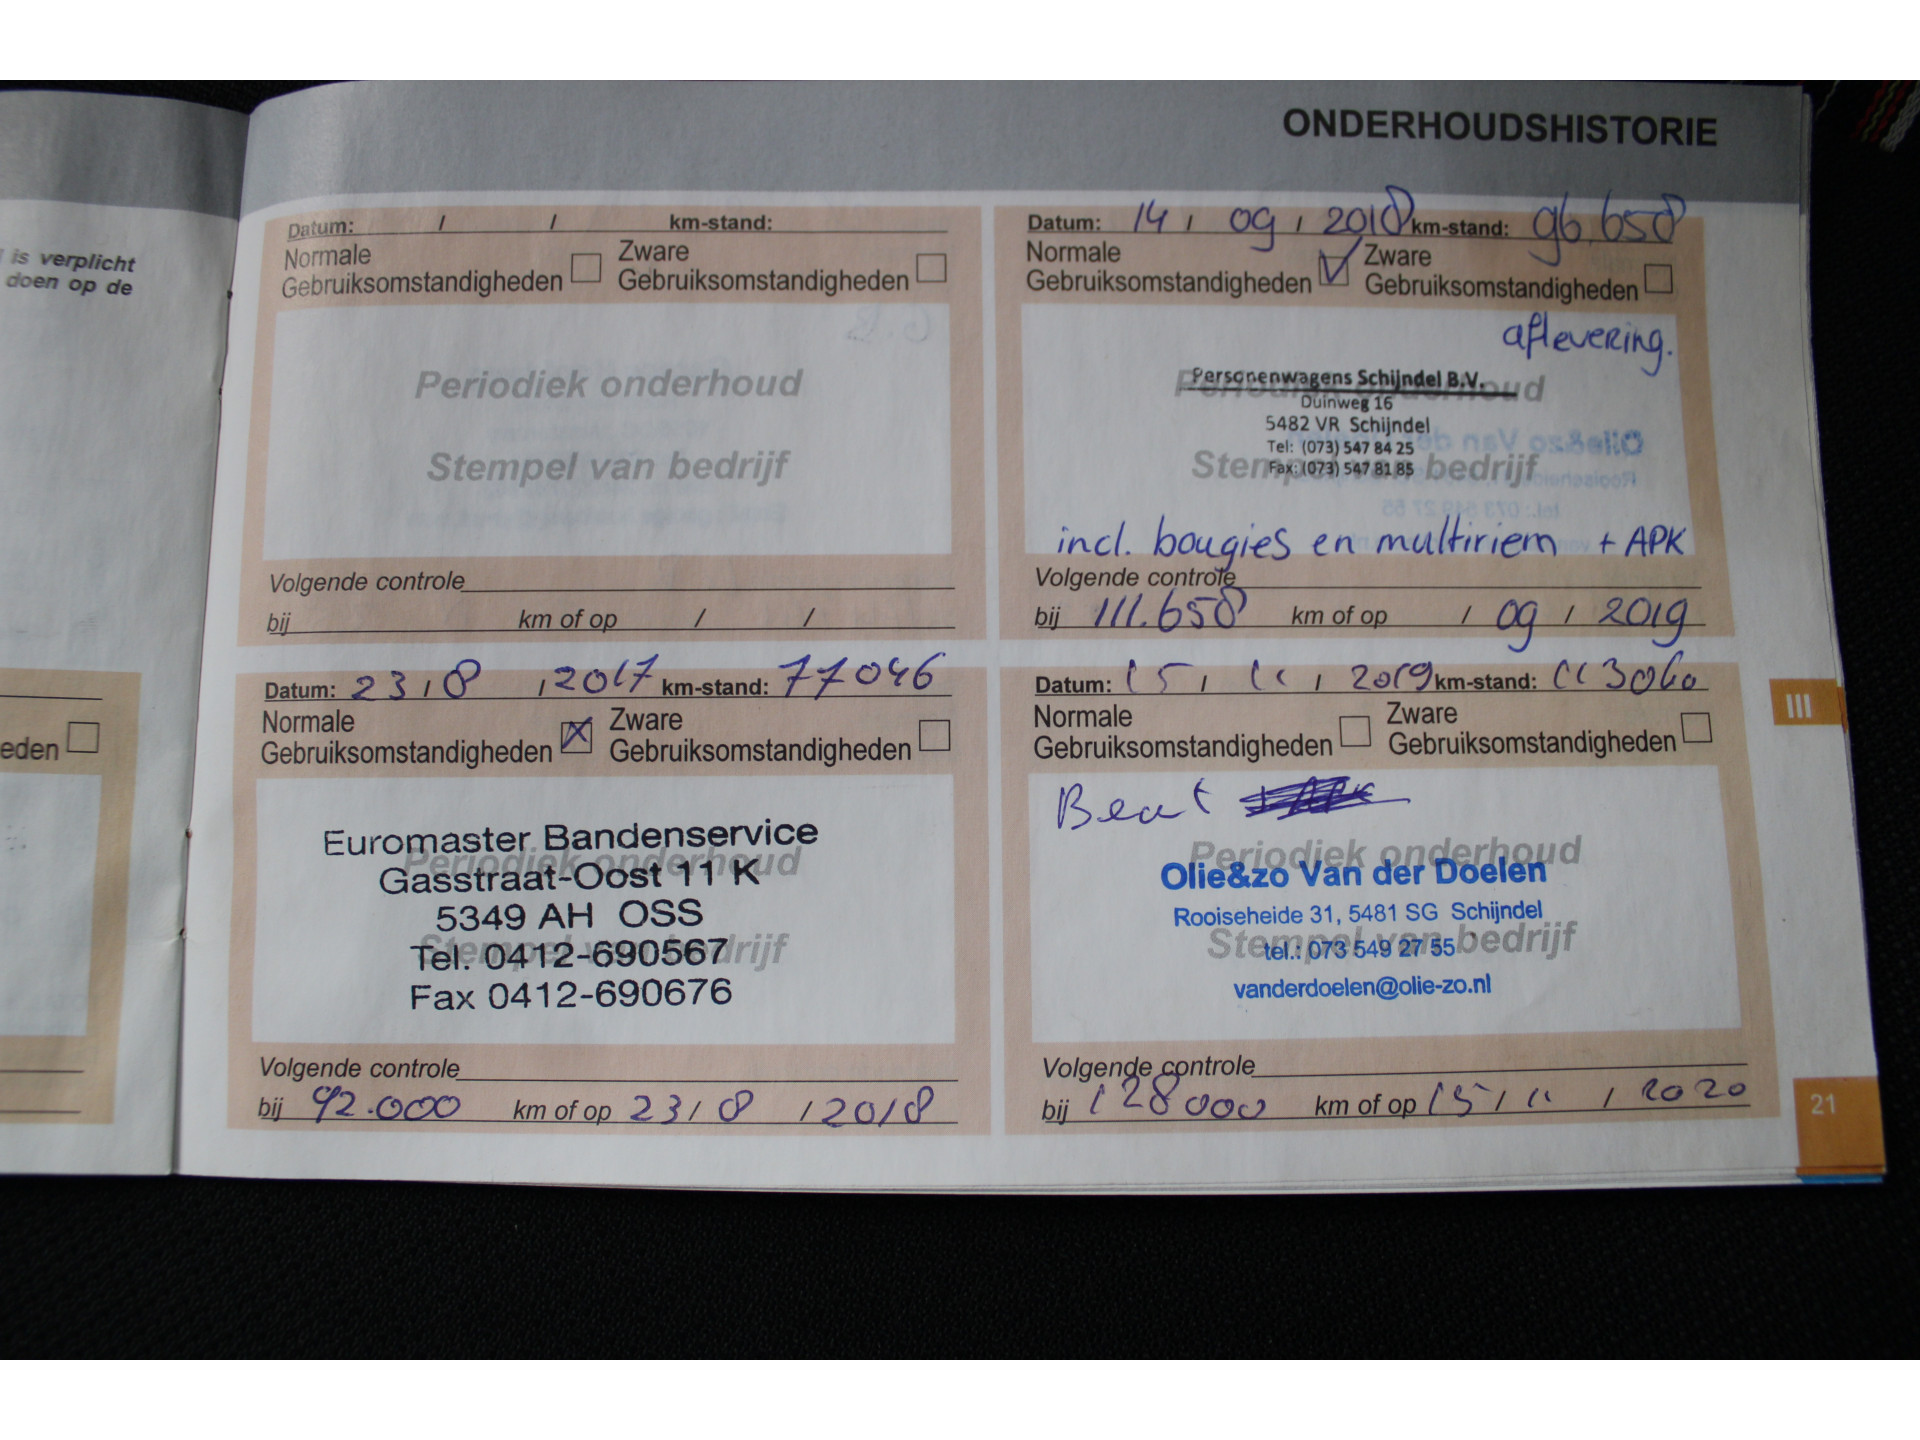 ONDERHOUDSHISTORIE
is verplicht
doen op de
eden
Datum: / / km-stand:
Normale Gebruiksomstandigheden
Zware Gebruiksomstandigheden
Periodiek onderhoud
Stempel van bedrijf
Volgende controle
bij km of op / /
Datum: 14 / 09 / 2018 km-stand: 96.658
Normale Gebruiksomstandigheden
Zware Gebruiksomstandigheden
aflevering.
Periodiek onderhoud
Personenwagens Schijndel B.V.
Duinweg 16
5482 VR Schijndel
Tel: (073) 547 84 25
Stempel van bedrijf
Fax: (073) 547 81 85
incl. bougies en multiriem + APK
Volgende controle
bij 111.658 km of op / 09 / 2019
Datum: 23 / 8 / 2017 km-stand: 77046
Normale Gebruiksomstandigheden
Zware Gebruiksomstandigheden
Euromaster Bandenservice
Periodiek onderhoud
Gasstraat-Oost 11 K
5349 AH OSS
Stempel van bedrijf
Tel. 0412-690567
Fax 0412-690676
Volgende controle
bij 92.000 km of op 23 / 8 / 2018
Datum: 15 / 11 / 2019 km-stand: 113060
Normale Gebruiksomstandigheden
Zware Gebruiksomstandigheden
Periodiek onderhoud
Olie&zo Van der Doelen
Rooiseheide 31, 5481 SG Schijndel
Stempel van bedrijf
tel.: 073 549 27 55
vanderdoelen@olie-zo.nl
Volgende controle
bij 128000 km of op 15 / 11 / 2020
III
21